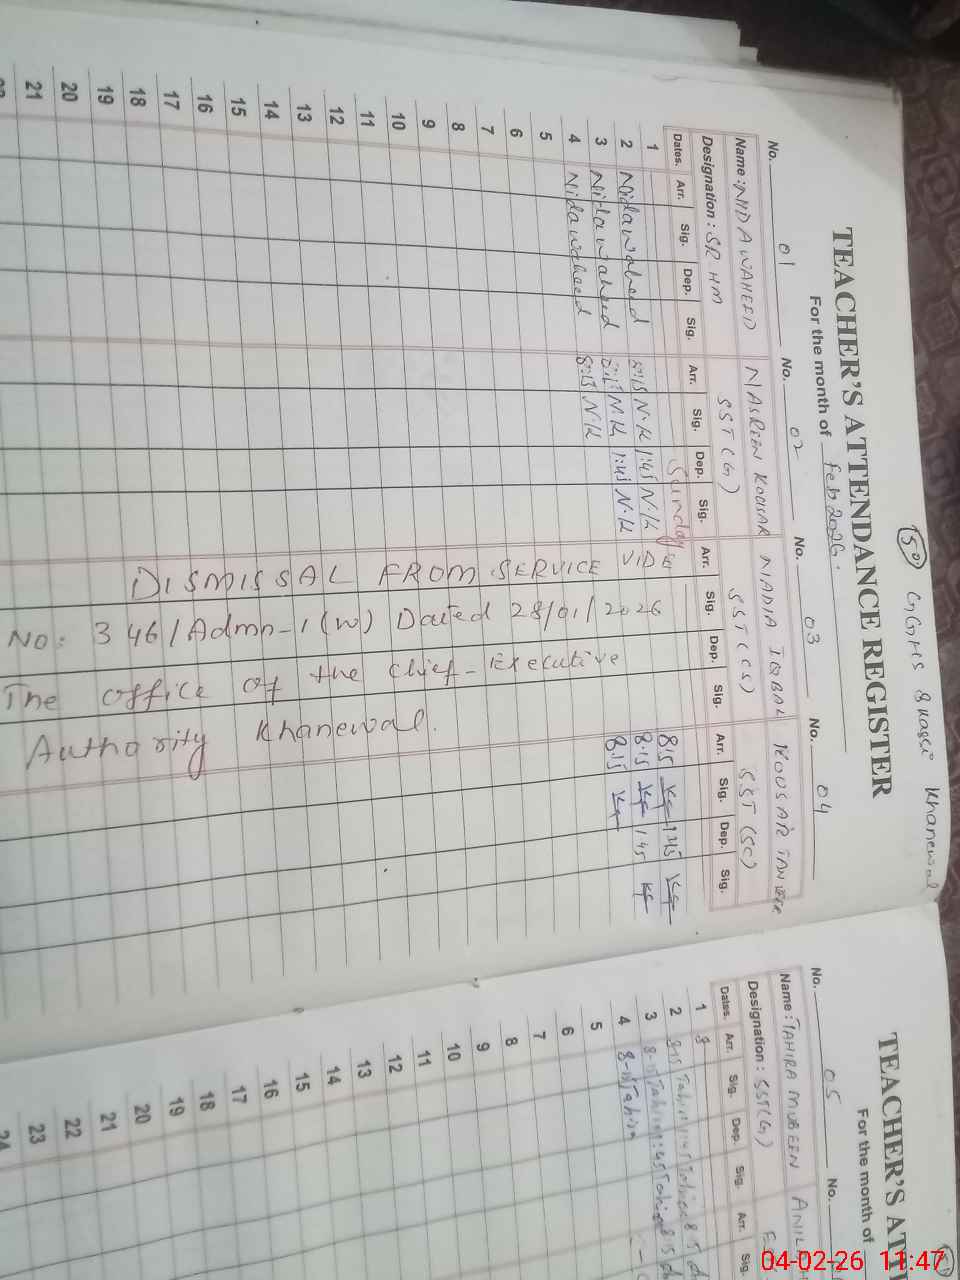 (50) GGHS 8 Kassi Khanewal
TEACHER'S ATTENDANCE REGISTER
For the month of Feb 2026.
No. 01 No. 02 No. 03 No. 04
Name : NIDA WAHEED NASREEN KOUSAR NADIA IQBAL KOUSAR TANVEER
Designation : SR HM SST (G) SST (CS) SST (SC)
Dates. Arr. Sig. Dep. Sig. Arr. Sig. Dep. Sig. Arr. Sig. Dep. Sig. Arr. Sig. Dep. Sig.
1 Sunday
2 Nida waheed 8:15 N.K 1:45 N.K 815 1:45
3 Nida waheed N.K 1:45 N.K 8:15 1:45
4 Nida waheed 8:15 N.K 8:15
5
6
7
8
9
10
11
12
13
14
15
16
17
18
19
20
21
DISMISSAL FROM SERVICE VIDE
NO: 346/Admn-1(W) Dated 28/01/2026
The office of the Chief-Executive
Authority Khanewal.
TEACHER'S ATT
For the month of
No. 05 No.
Name : TAHIRA MUBEEN
Designation : SST(G)
Dates. Arr. Sig. Dep. Sig. Arr. Sig.
1
2 8:15
3
4 8-15 Tahira
5
6
7
8
9
10
11
12
13
14
15
16
17
18
19
20
21
22
23
24
04-02-26 11:47